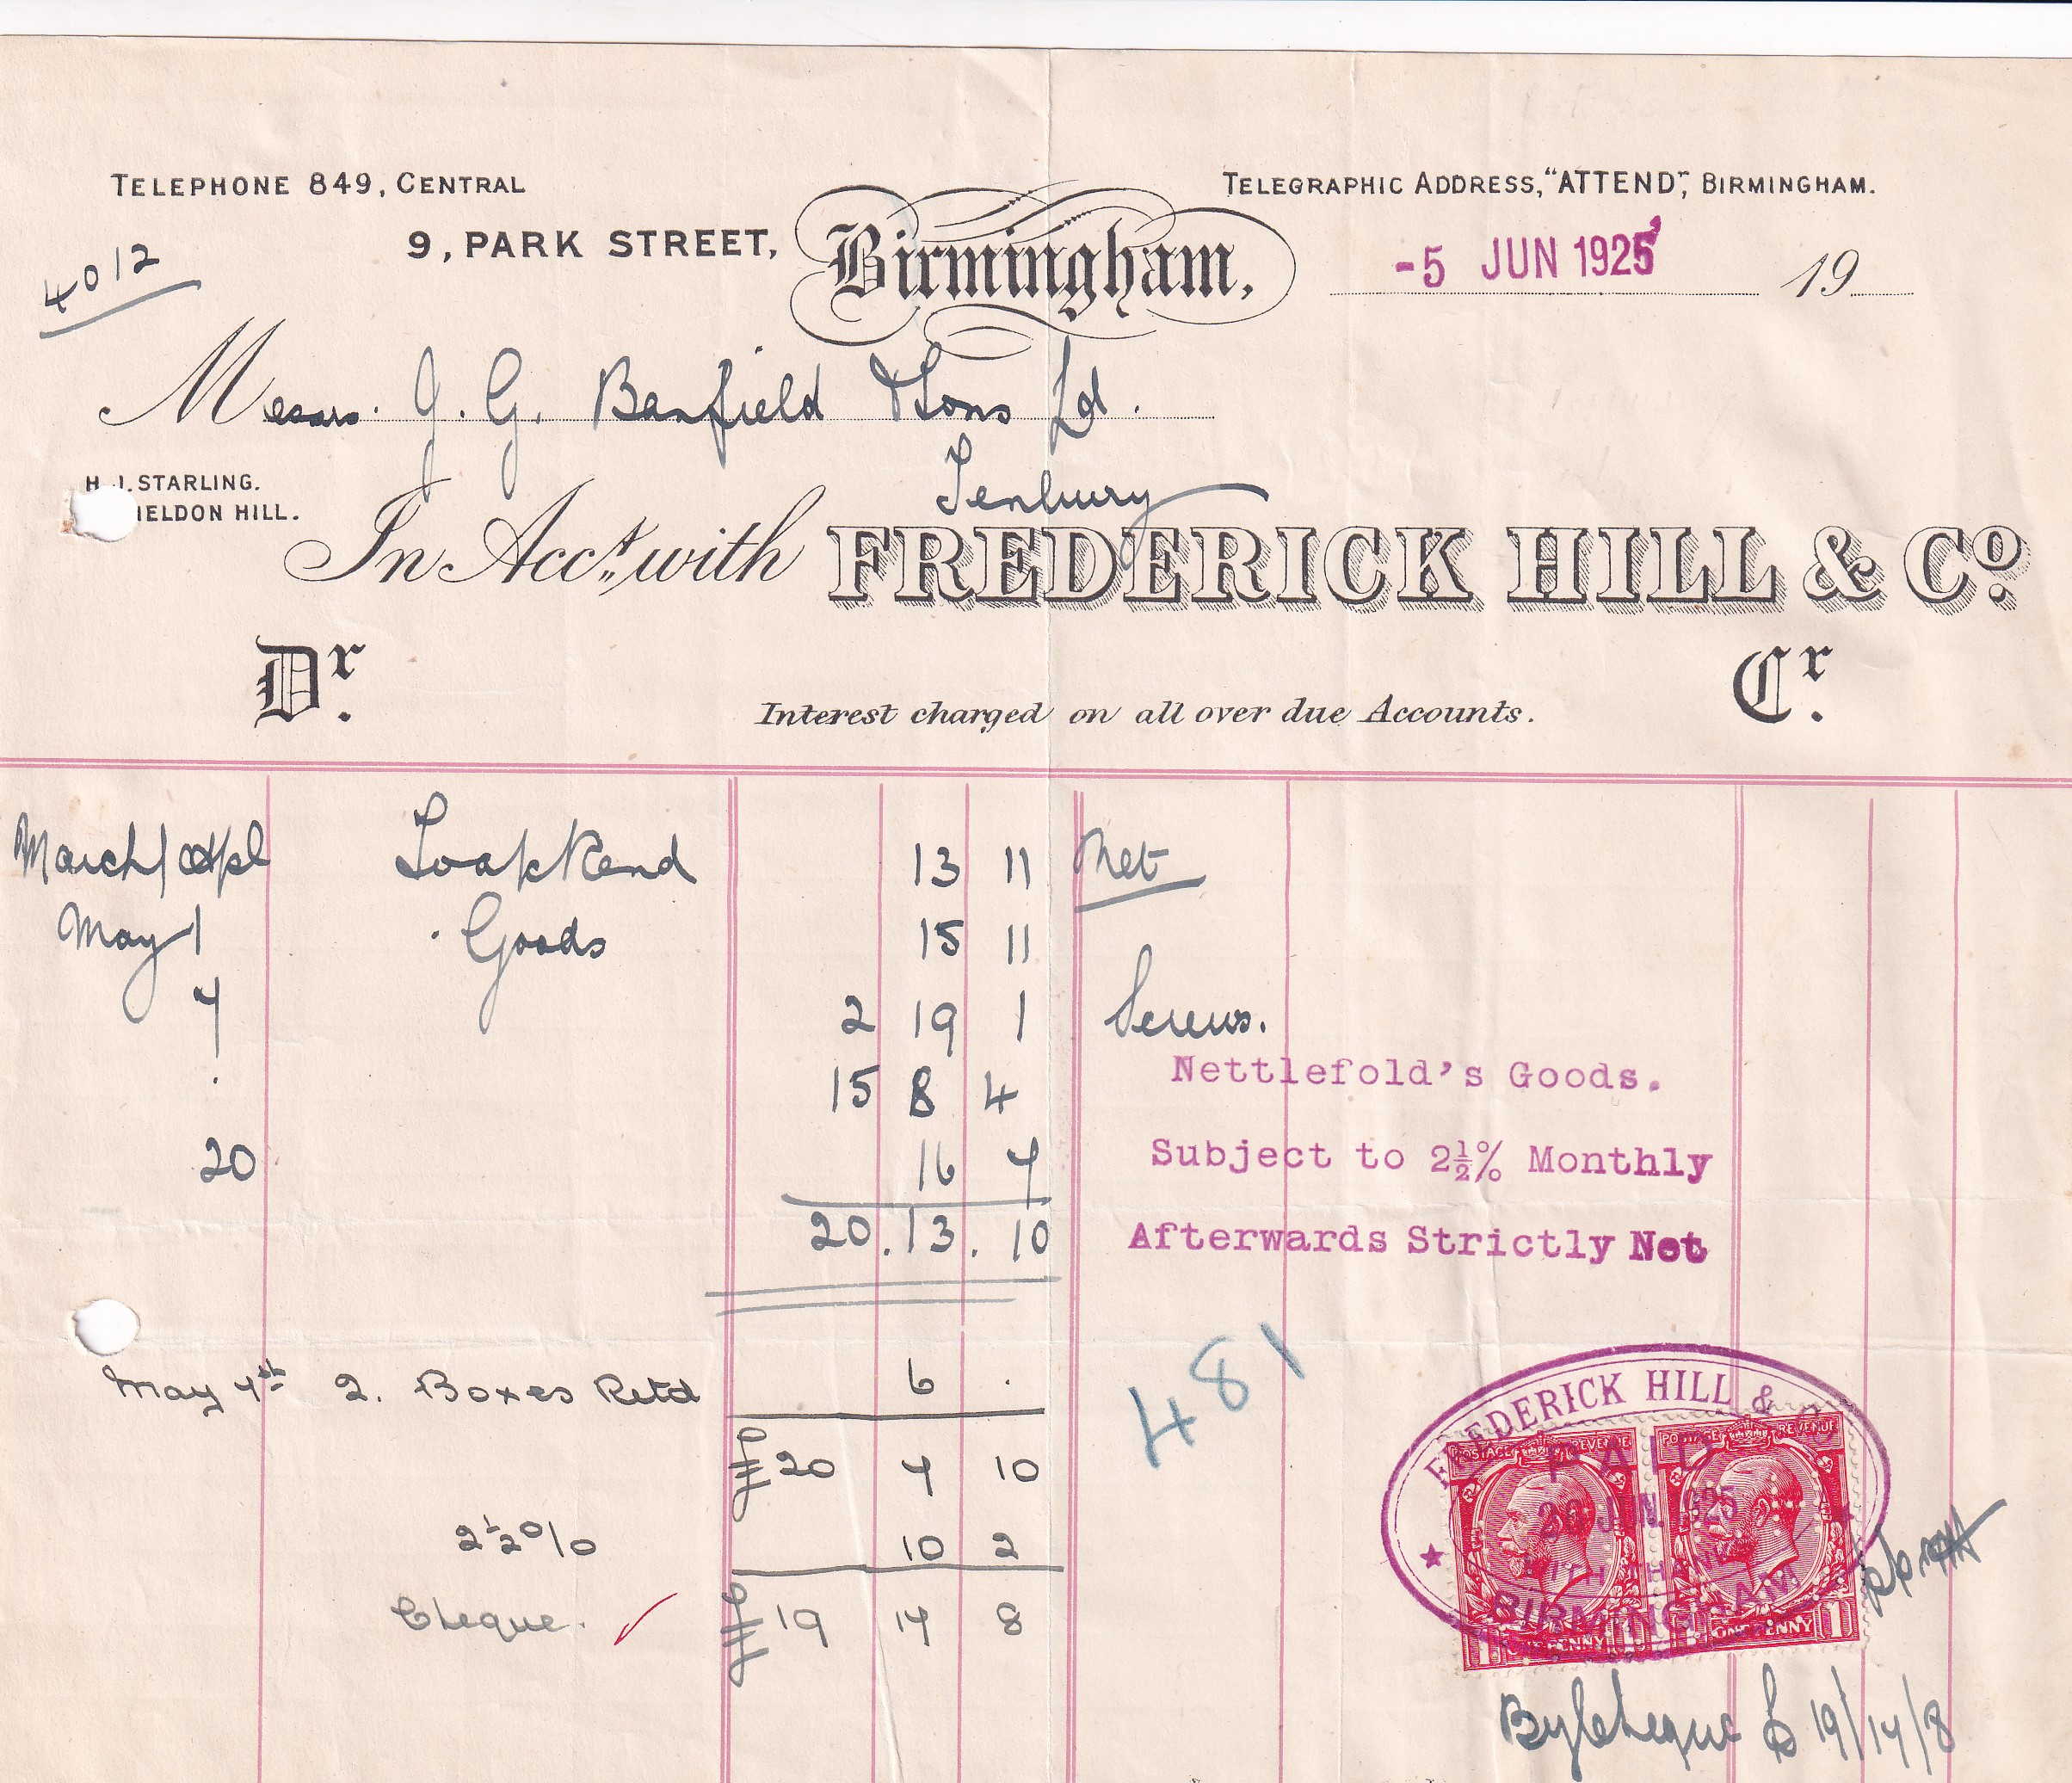 TELEPHONE 849, CENTRAL
TELEGRAPHIC ADDRESS, "ATTEND", BIRMINGHAM.
4012
9, PARK STREET, Birmingham,
-5 JUN 1925 19
Messrs. J. G. Banfield & Sons Ld.
Tenbury
H. J. STARLING.
HELDON HILL.
In Acct. with FREDERICK HILL & Co.
Dr. Cr.
Interest charged on all over due Accounts.
March/Apl To a/c Rend 13 11 Net
May 1 Goods 15 11
7 2 19 1 Screws.
15 8 4 Nettlefold's Goods.
20 16 7 Subject to 2½% Monthly
20.13.10 Afterwards Strictly Net
481
May 7th 2. Boxes Retd 6 .
£ 20 7 10
2½% 10 2
Cheque. £ 19 17 8
FREDERICK HILL & Co
POSTAGE REVENUE POSTAGE REVENUE
PAID
20 JUN 1925
WITH THANKS
BIRMINGHAM
1 ONE PENNY ONE PENNY 1
By Cheque £ 19/17/8